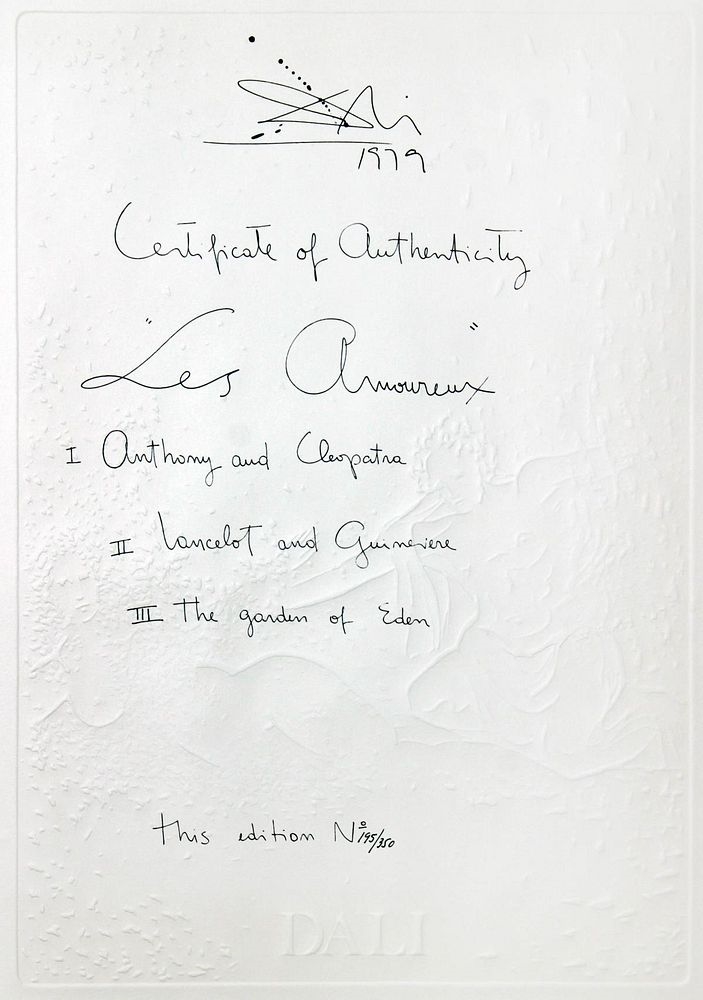 Dali
1979
Certificate of Authenticity
"Les Amoureux"
I Anthony and Cleopatra
II Lancelot and Guinevere
III The garden of Eden
this edition Nº 195/350
DALI